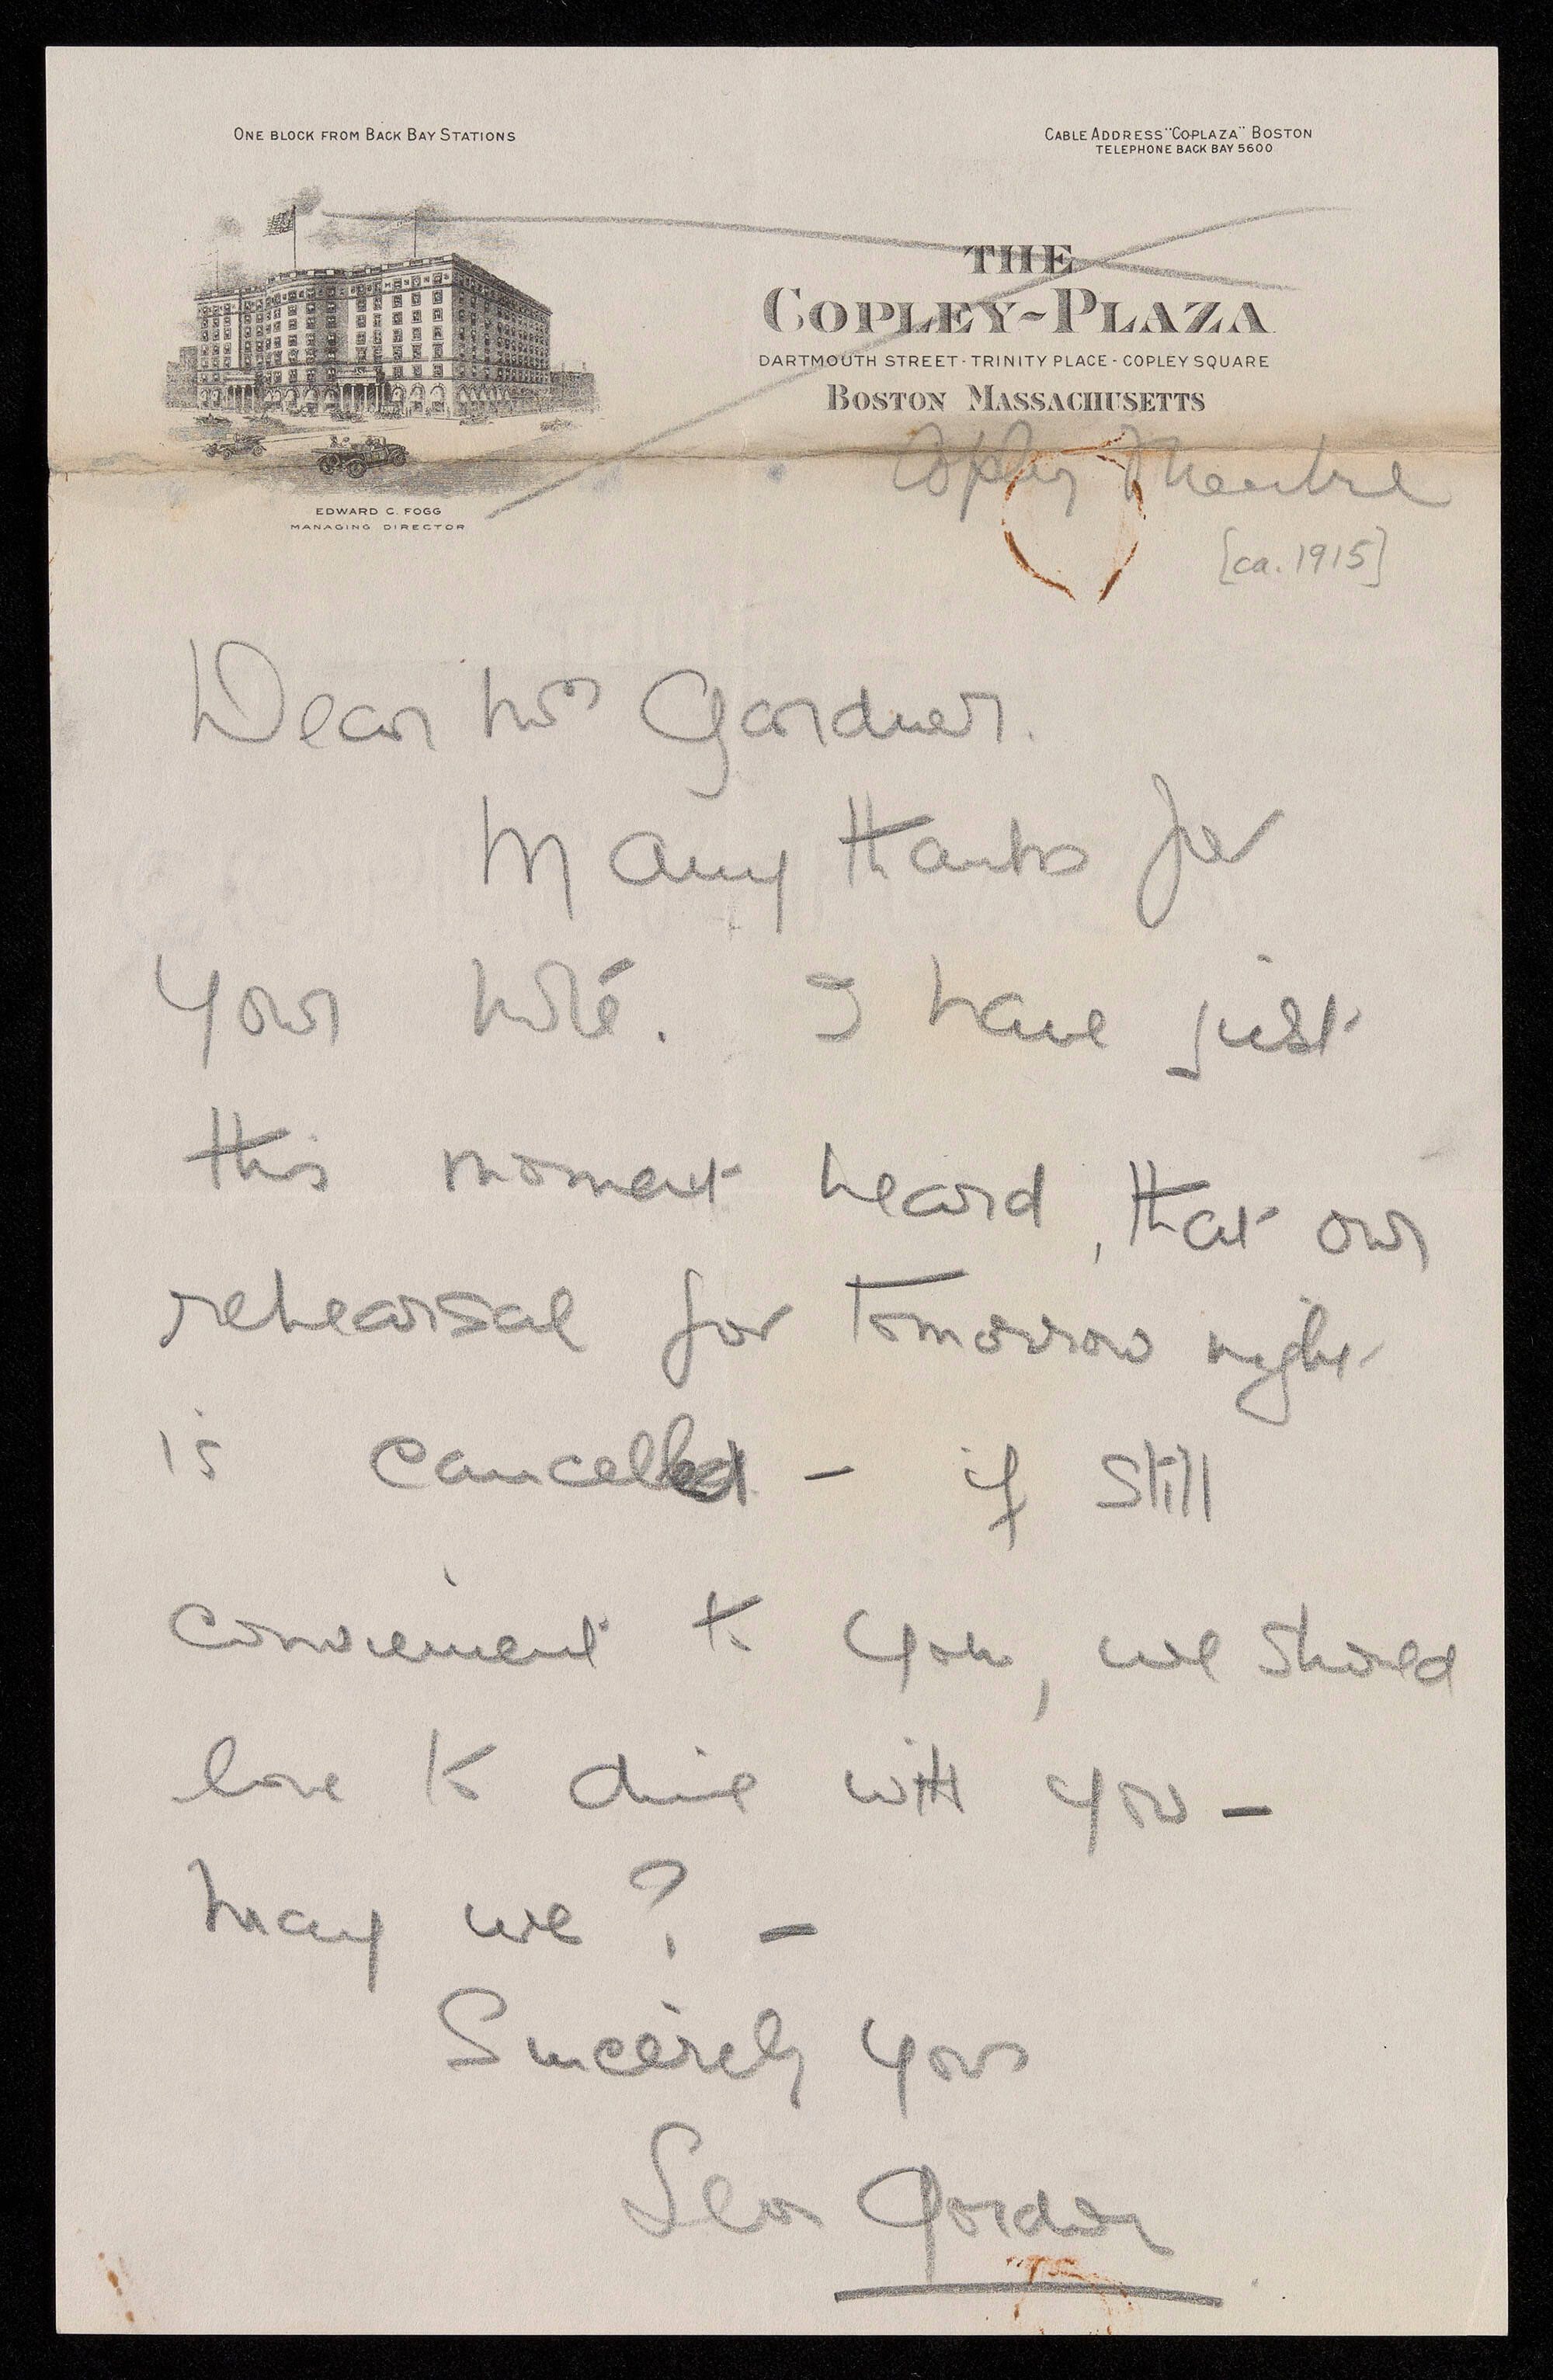 ONE BLOCK FROM BACK BAY STATIONS
CABLE ADDRESS "COPLAZA" BOSTON
TELEPHONE BACK BAY 5600
THE
COPLEY-PLAZA
DARTMOUTH STREET - TRINITY PLACE - COPLEY SQUARE
BOSTON MASSACHUSETTS
EDWARD C. FOGG
MANAGING DIRECTOR
Copley Theatre
[ca. 1915]
Dear Mrs Gardner.
Many thanks for
your note. I have just
this moment heard, that our
rehearsal for tomorrow night
is cancelled - if still
convenient to you, we should
love to dine with you -
may we? -
Sincerely yours
Leon Gordon